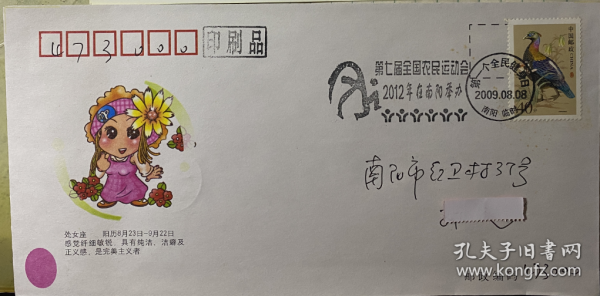 473000
印刷品
第七届全国农民运动会
2012年在南阳举办
第一个全民健身日
2009.08.08
南阳 临时
中国邮政
CHINA
40
南阳市红卫村37号
处女座 阳历8月23日-9月22日
感觉纤细敏锐、具有纯洁、洁癖及
正义感、是完美主义者
邮政编码 473
孔夫子旧书网
www.kongfz.com